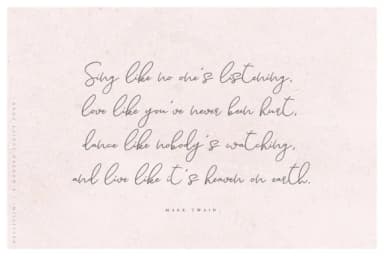 Sing like no one's listening,
love like you've never been hurt,
dance like nobody's watching,
and live like it's heaven on earth.
MARK TWAIN